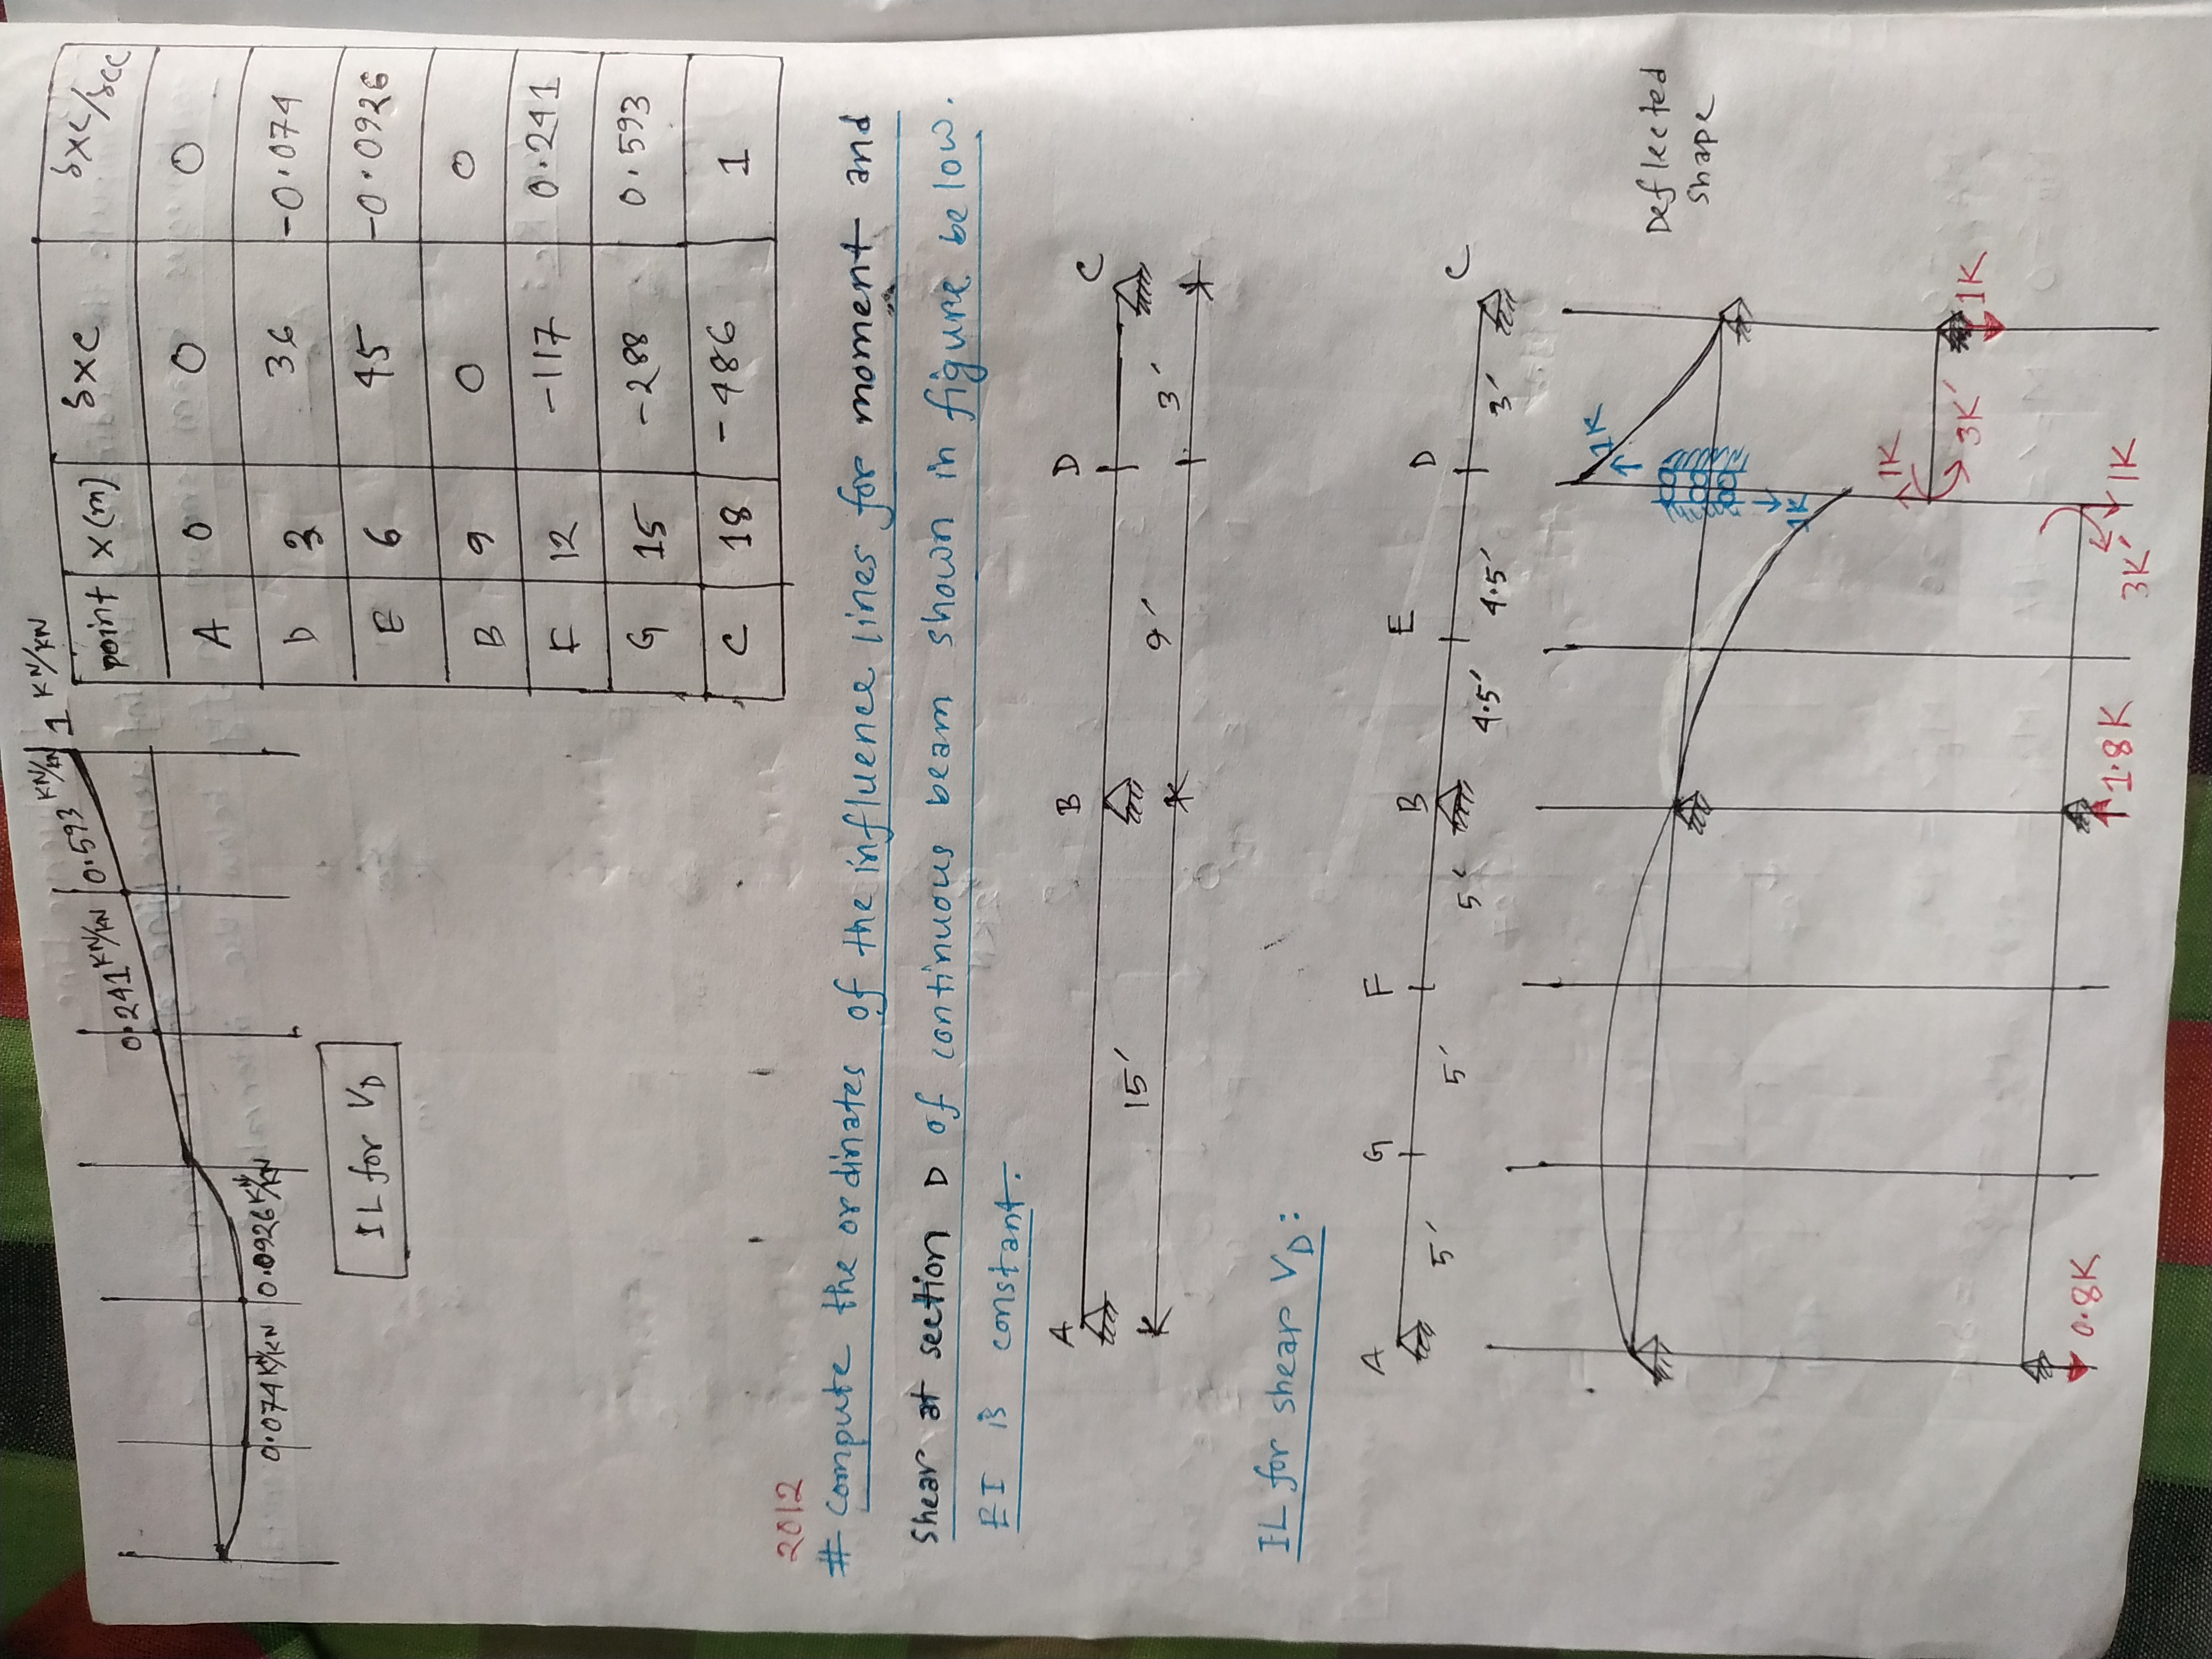 0.074 KN/KN
0.0926 KN/KN
0.241 KN/KN
0.593 KN/KN
1 KN/KN
IL for VD
point x(m) δxc δxc/δcc
A 0 0 0
D 3 36 -0.074
E 6 45 -0.0926
B 9 0 0
F 12 -117 0.241
G 15 -288 0.593
C 18 -486 1
2012
# Compute the ordinates of the influence lines for moment and
Shear at section D of continuous beam shown in figure below.
EI is constant.
A B D C
15' 9' 3'
IL for shear VD:
A G F B E D C
5' 5' 5' 4.5' 4.5' 3'
Deflected
shape
1K
1K
1K
3K'
1K
0.8K
1.8K
3K'
1K